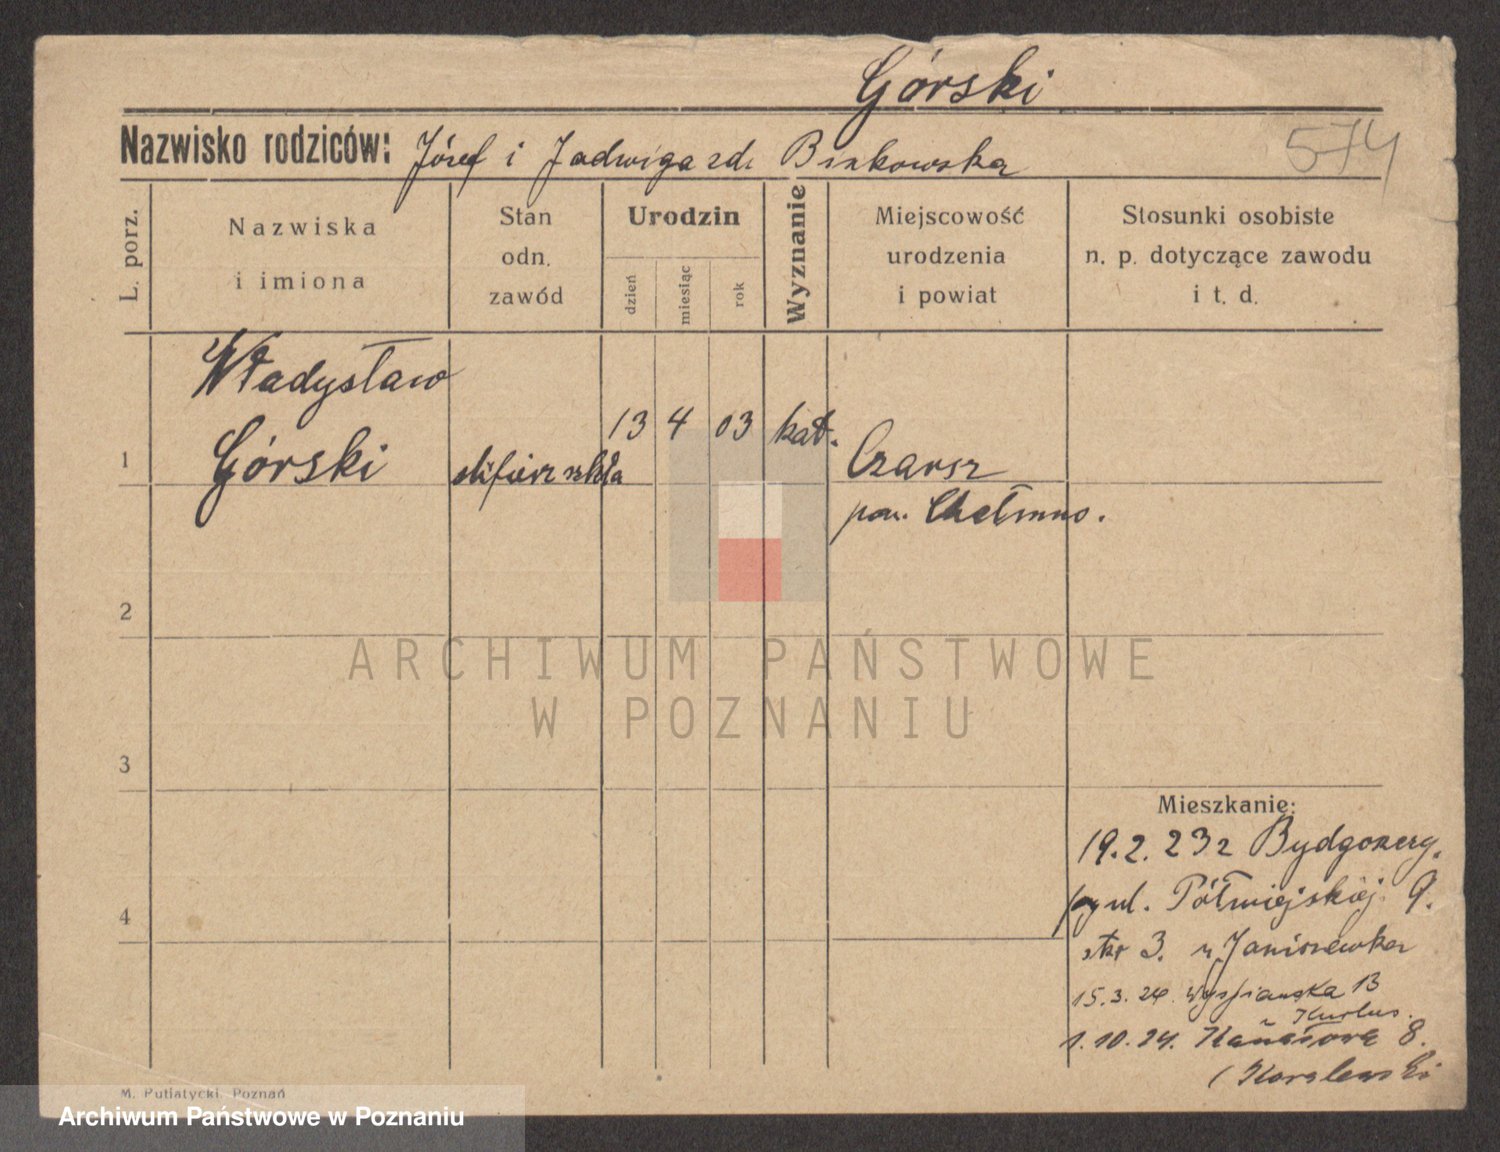 Górski
Nazwisko rodziców: Józef i Jadwiga zd.
574
L. porz.
Nazwiska
i imiona
Stan
odn.
zawód
Urodzin
dzień
miesiąc
rok
Wyznanie
Miejscowość
urodzenia
i powiat
Stosunki osobiste
n. p. dotyczące zawodu
i t. d.
Władysław
1 Górski szkła 13 4 03 kat.
pow. Chełmno.
2
3
4
ARCHIWUM PAŃSTWOWE
W POZNANIU
Mieszkanie:
19.2.23 z
ul. Półwiejskiej 9.
3. u Janiszewska
15.3.24
1.10.24. 8.
M. Putiatycki, Poznań
Archiwum Państwowe w Poznaniu